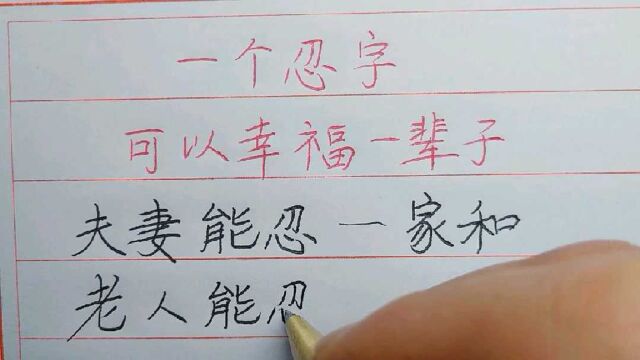 一个忍字
可以幸福一辈子
夫妻能忍一家和
老人能忍